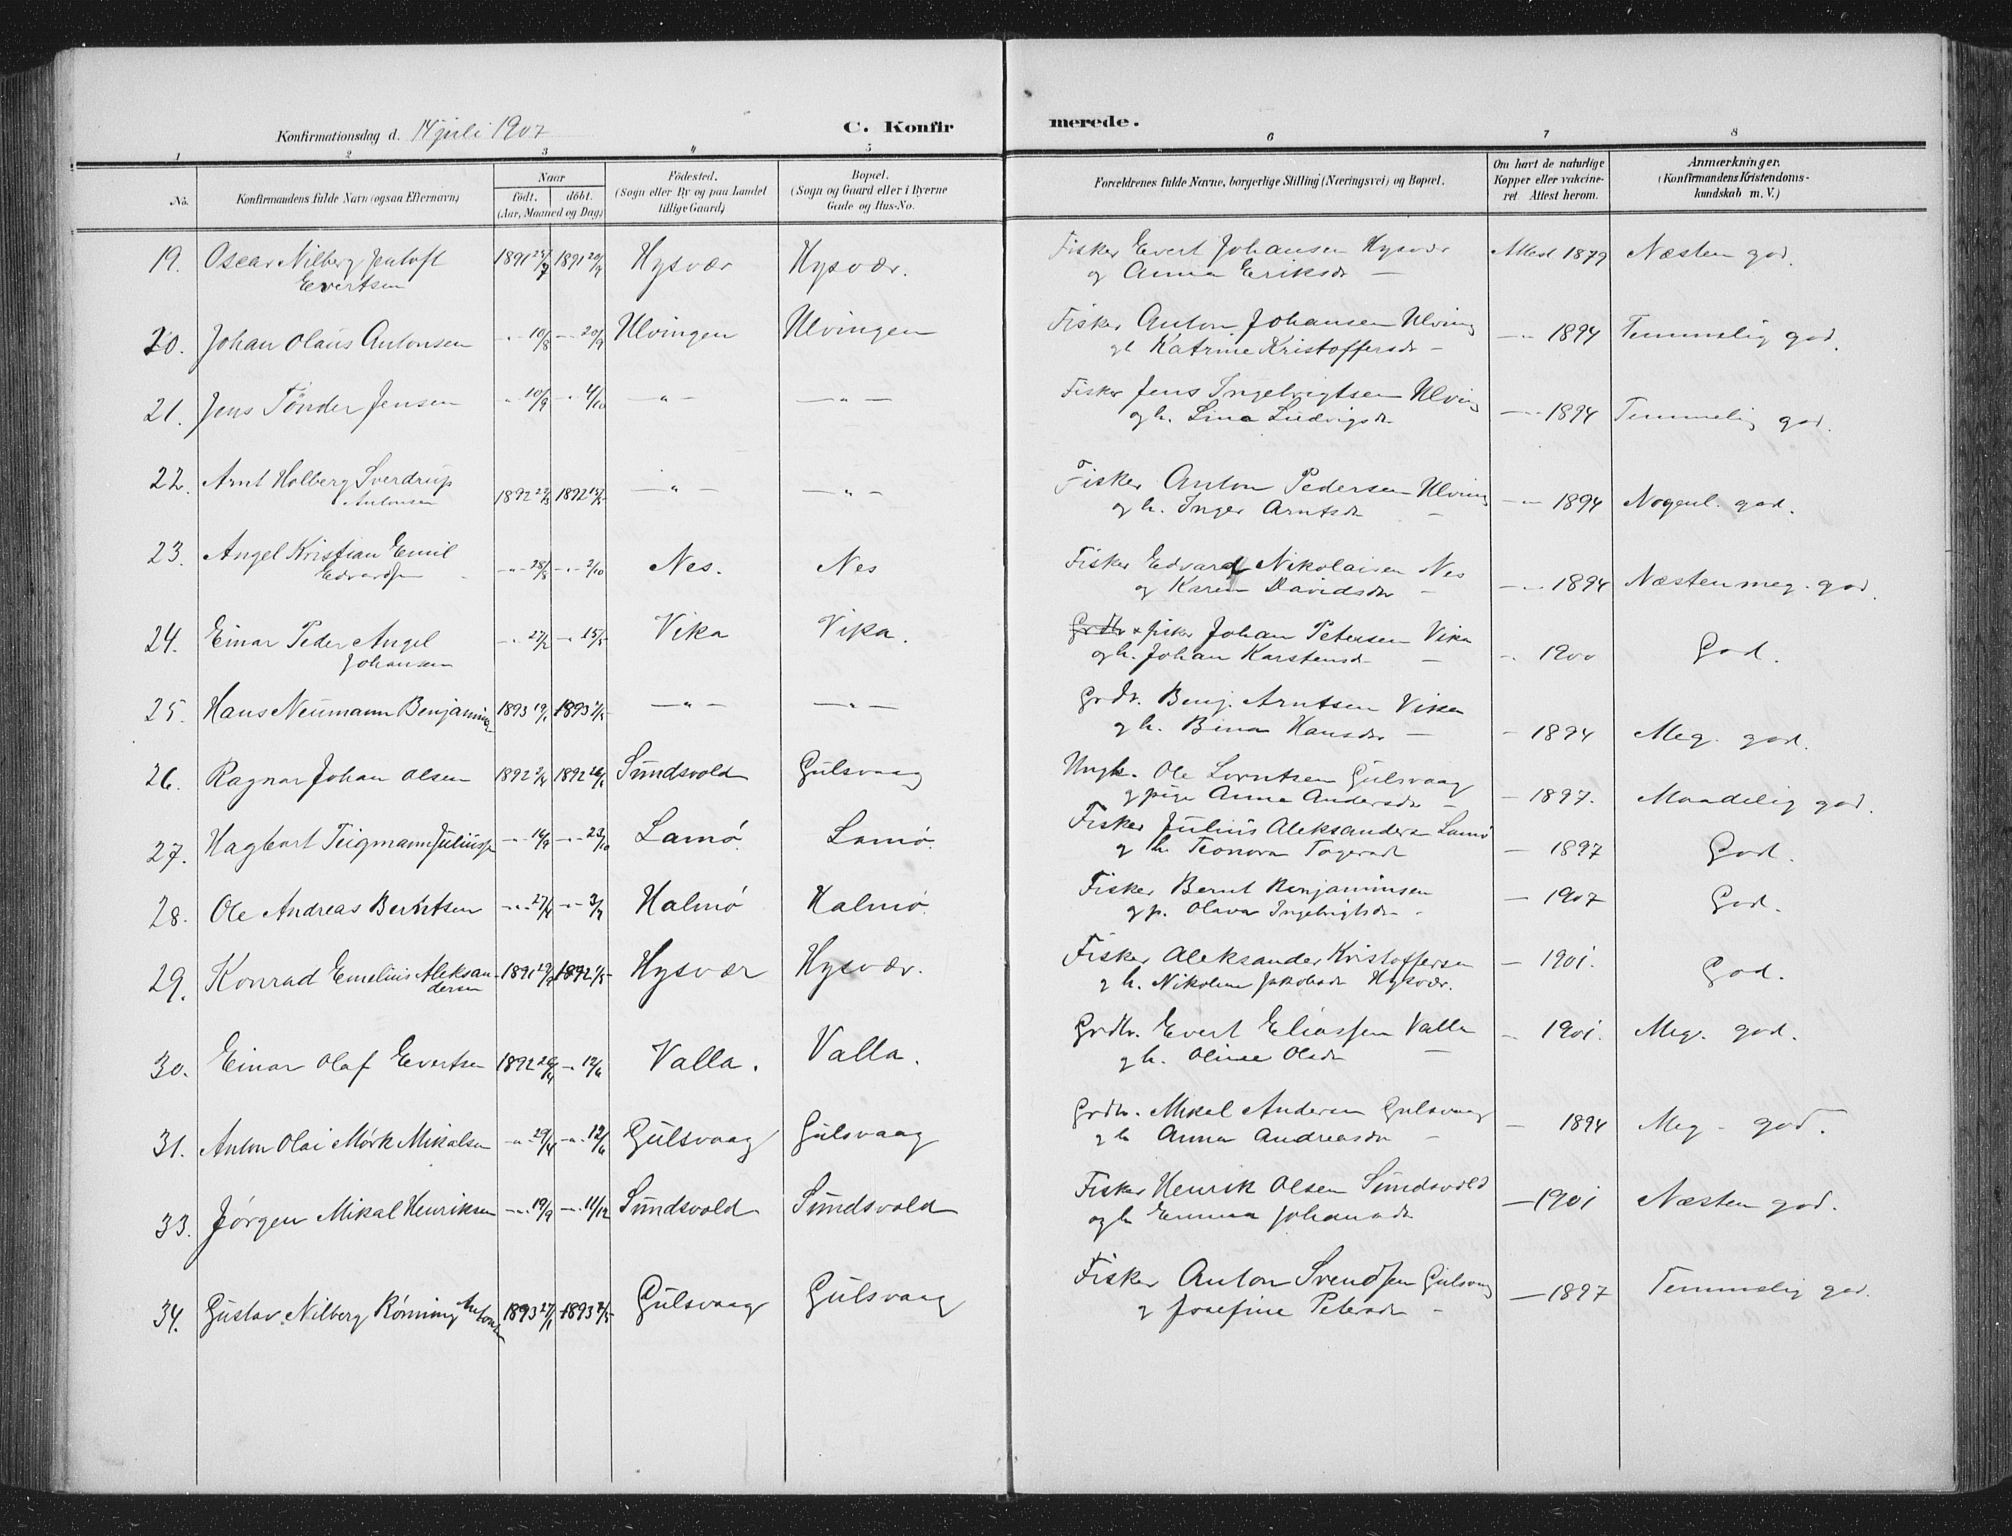 Konfirmationsdag d. 14 juli 1907
C. Konfirmerede.
1 2 3 4 5 6 7 8
No. Konfirmandens fulde Navn (ogsaa Efternavn) Naar født. døbt. (Aar, Maaned og Dag) Fødested. (Sogn eller By og paa Landet tillige Gaard) Bopæl. (Sogn og Gaard eller i Byerne Gade og Hus-No. Forældrenes fulde Navne, borgerlige Stilling (Næringsvei) og Bopæl. Om havt de naturlige Kopper eller vakcineret Attest herom. Anmærkninger. (Konfirmandens Kristendomskundskab m. V.)
19. Oscar Nilberg Jentoft Evertsen 1891 1891 20/9 Hysvær Hysvær. Fisker Evert Johansen Hysvær og Anna Eriksdr — Attest 1879 Næsten god.
20. Johan Olaus Antonsen - 10/8 - 20/9 Ulvingen Ulvingen Fisker Anton Johansen Ulving gh Katrine Kristoffersdr — -"- 1894 Temmelig god.
21. Jens Tönder Jensen - 10/9 - 4/10 -"- -"- Fisker Jens Ingebrigtsen Ulving ogh. Lina Ludvigsdr -"- 1894 Temmelig god.
22. Arnt Holberg Sverdrup Antonsen 1892 1892 -"- -"- Fisker Anton Pedersen Ulving ogh. Inger Arntsdr — -"- 1894 Nogenl. god.
23. Angel Kristian Emil Edvardsen -"- 28/8 -"- 2/10 Nes. Nes Fisker Edvard Nikolaisen Nes og Karen Davidsdr — -"- 1894 Næsten meg. god.
24. Einar Peder Angel Johansen -"- 27/2 -"- 15/5 Vika Vika. Grdbr & fisker Johan Petersen Vika ogh. Johan Karstensdr — -"- 1900 God.
25. Hans Neumann Benjaminsen 1893 19/1 1893 -"- -"- Grdbr. Benj. Arntsen Viken gh. Bina Hansdr — - 1894 Meg. god.
26. Ragnar Johan Olsen 1892 1892 Sundsvold Gulsvaag Ungk. Ole Lorntsen Gulsvaag gpige Anna Andersdr — - 1897. Maadelig god.
27. Hagbart Teigmann Juliussen -"- 14/9 -"- 23/10 Lamø Lamø. Fisker Julius Aleksandersen Lamø gh Leonora - 1897 God.
28. Ole Andreas Berntsen -"- 27/4 -"- 3/7 Halmø Halmø. Fisker Bernt Benjaminsen gp. Olava Ingebrigtsdr - - 1907 God.
29. Konrad Emelius Aleksandersen 1891 1892 1/5 Hysvær Hysvær. Fisker Aleksander Kristoffersen gh. Nikoline Jakobsdr Hysvær. - 1901. God.
30. Einar Olaf Evertsen 1892 26/4 -"- 12/6 Valla. Valla. Grdbr. Evert Eliassen Valla gh. Oline Olsdr — - 1901. Meg. god.
31. Anton Olai Mørk Mikalsen -"- 29/4 -"- 12/6 Gulsvaag Gulsvaag Grdbr. Mikal Andersen Gulsvaag gh Anna Andreasdr — - 1894 Meg. god.
33. Jørgen Mikal Henriksen -"- 19/9 -"- 11/12 Sundsvold Sundsvold Fisker Henrik Olsen Sundsvold ogh Emma Johansdr - 1901 Næsten god.
34. Gustav Nilberg Rönning Antonsen 1893 27/1 1893 Gulsvaag Gulsvaag Fisker Anton Svendsen Gulsvaag g Josefine Petersdr — - 1897 Temmelig god.